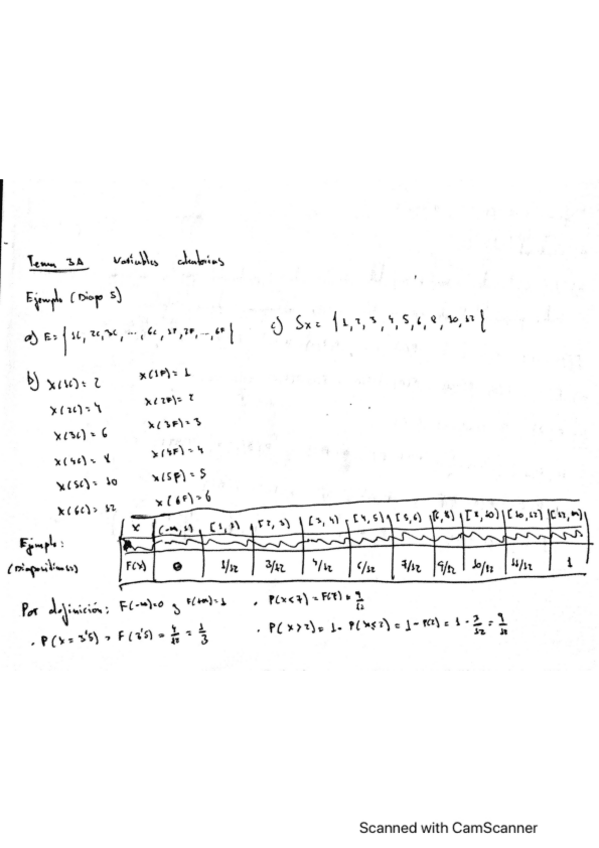 Tema 3A Variables aleatorias
Ejemplo (Diapo 5)
a) E = {1C, 2C, 3C, ..., 6C, 1F, 2F, ..., 6F}
c) Sx = {1, 2, 3, 4, 5, 6, 8, 10, 12}
b) X(1C) = 2 X(1F) = 1
X(2C) = 4 X(2F) = 2
X(3C) = 6 X(3F) = 3
X(4C) = 8 X(4F) = 4
X(5C) = 10 X(5F) = 5
X(6C) = 12 X(6F) = 6
Ejemplo:
X (-∞, 1) [1, 2) [2, 3) [3, 4) [4, 5) [5, 6) [6, 8) [8, 10) [10, 12) [12, ∞)
F(X) 0 1/12 3/12 4/12 6/12 7/12 9/12 10/12 11/12 1
Por definición: F(-∞)=0 y F(+∞)=1 . P(X<7) = F(7) = 9/12
. P(X = 3'5) = F(3'5) = 4/12 = 1/3 . P(X>2) = 1 - P(X≤2) = 1 - F(2) = 1 - 3/12 = 9/12
Scanned with CamScanner